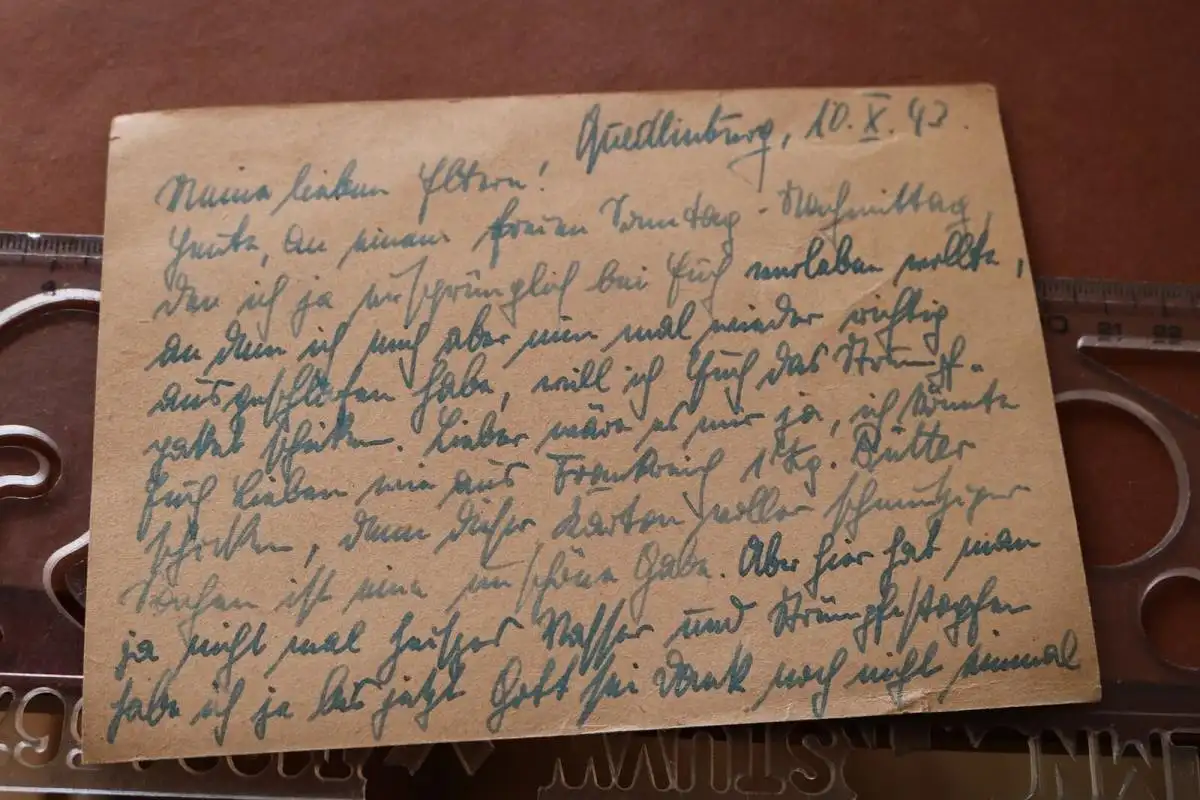 Quedlinburg, 10.X.43.
Meine lieben Eltern!
Heute, an einem freien Sonntag-Nachmittag,
den ich ja ursprünglich bei Euch verleben wollte,
an dem ich mich aber nun mal wieder richtig
ausgeschlafen habe, will ich Euch das Strumpf-
paket schicken. Lieber wäre es mir ja, ich könnte
Euch Lieben wie aus Frankreich 1 kg. Butter
schicken, denn dieser Karton voller schmutziger
Sachen ist eine unschöne Gabe. Aber hier hat man
ja nicht mal heißes Wasser und Strümpfestopfen
habe ich ja bis jetzt Gott sei Dank noch nicht einmal